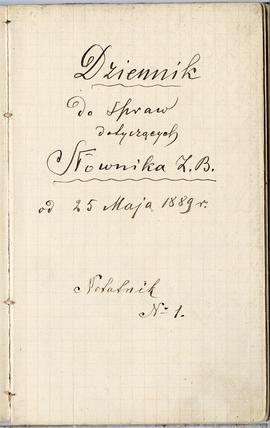 Dziennik
do spraw
dotyczących
Słownika Z.B.
od 25 Maja 1889 r.
Notatnik
№ 1.